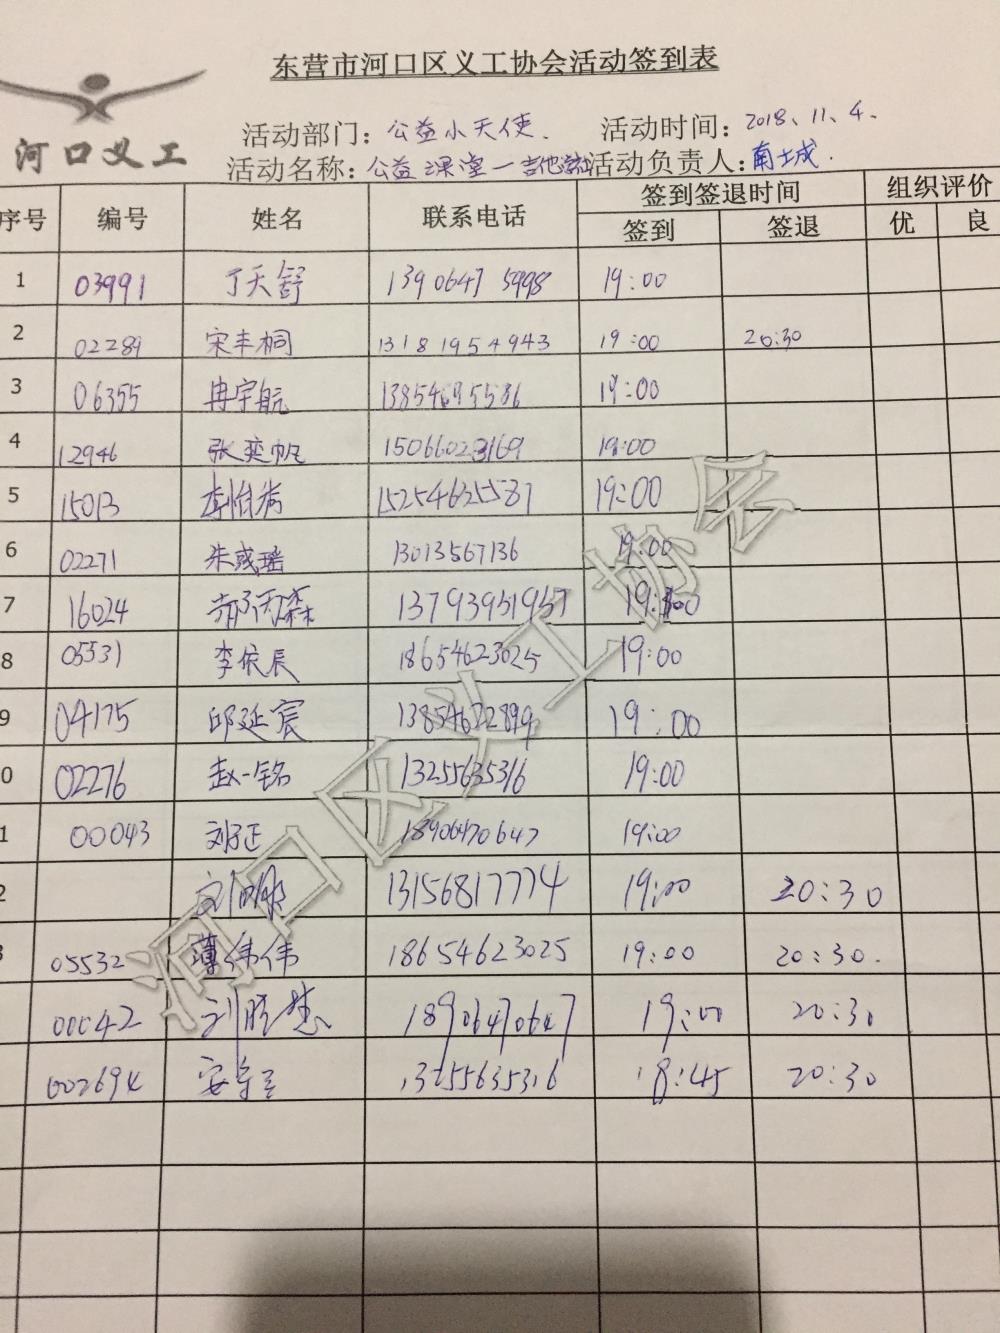 东营市河口区义工协会活动签到表
河口义工
活动部门：公益小天使. 活动时间：2018、11、4、
活动名称：公益课堂一吉他 活动负责人：南土城.
序号 编号 姓名 联系电话 签到签退时间 组织评价
签到 签退 优 良
1 03991 丁天舒 1390647 5998 19:00
2 02289 宋丰桐 13181954943 19:00 20:30
3 06355 冉宇航 13854695586 19:00
4 12946 张奕帆 15066023169 19:00
5 15013 李怡 15254625587 19:00
6 02271 朱彧瑶 13013567136 19:00
7 16024 森 13793951957 19:00
8 05531 李依辰 18654623025 19:00
9 04175 邱延宸 13854622899 19:00
0 02276 赵一铭 13255635316 19:00
1 00043 刘子正 18906470647 19:00
2 13156817774 19:00 20:30
3 05532 薄伟伟 18654623025 19:00 20:30.
00042 刘 18906470647 19:00 20:30
002694 安 13255635316 18:45 20:30
河口区义工协会